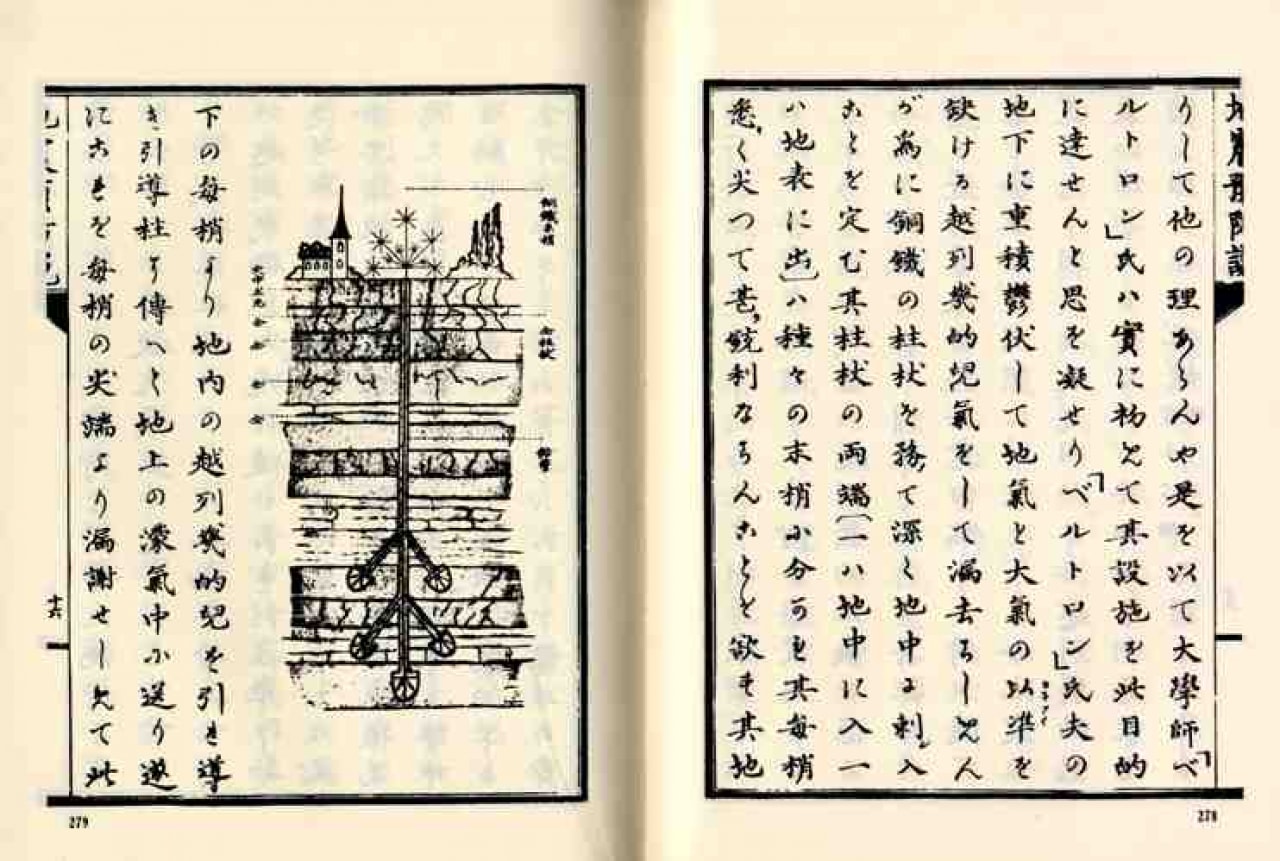 地震預防説
りして他の理あらんや是を以て大學師「ベ
ルトロン」氏ハ實に初めて其設施を此目的
に達せんと思を凝せり「ベルトロン」氏夫の
地下に重積鬱伏して地氣と大氣の以準を
缺ける越列幾的兒氣をして漏去らしめん
が為に銅鐵の柱杖を務て深く地中に刺入
ことを定む其柱杖の両端(一ハ地中に入一
ハ地表に出)ハ種々の末梢に分つを其毎梢
悉く尖つて甚鋭利ならんことを欲す其地
278
下の毎梢より地内の越列幾的兒を引き導
き引導柱より傳へて地上の濛氣中に送り遂
にこれを毎梢の尖端より漏謝せしめて此
十六
279